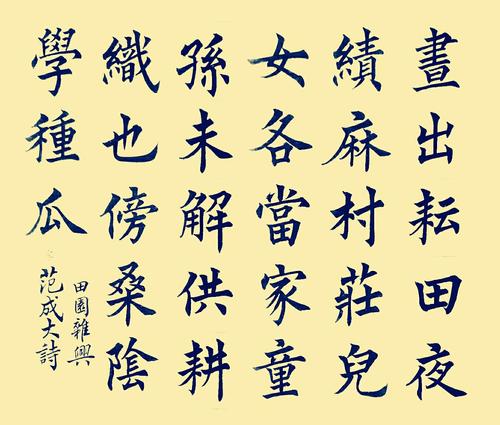 晝出耘田夜
績麻村莊兒
女各當家童
孫未解供耕
織也傍桑陰
學種瓜
田園雜興
范成大詩